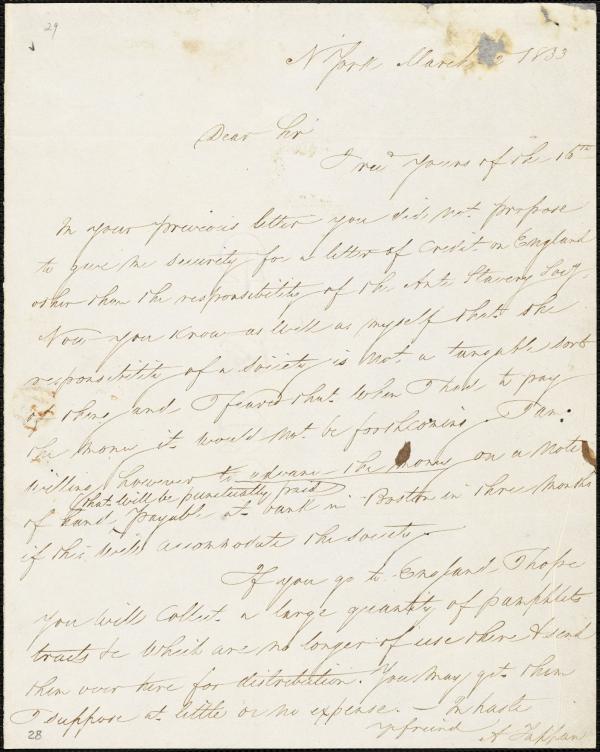 29
N York March 2 1833
Dear Sir
I recd yours of the 16th
In your previous letter you did not propose
to give me security for a letter of Credit on England
other than the responsibility of the Anti Slavery Socy.
Now you know as well as myself that the
responsibility of a society is not a tangable sort
of thing and I feared that when I had to pay
the money it would not be forthcoming. I am
willing however to advance the money on a note
(that will be punctually paid)
of hand payable at bank in Boston in three months
if this will accommodate the society.
If you go to England I hope
you will collect a large quantity of pamphlets
tracts &c which are no longer of use there & send
them over here for distribution. You may get them
I suppose at little or no expense. — In haste
yr friend
A Tappan
28